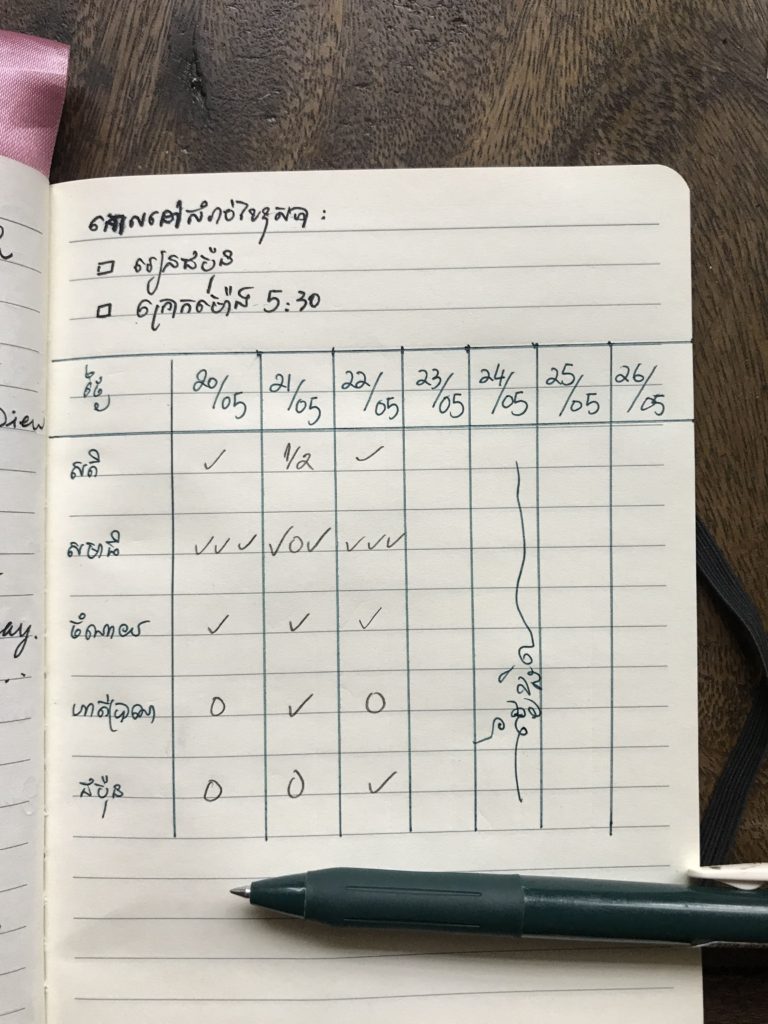 គោលដៅសំរាប់ខែឧសភា :
□ រៀនជប៉ុន
□ ក្រោកម៉ោង 5:30
ថ្ងៃ 20/05 21/05 22/05 23/05 24/05 25/05 26/05
សតិ ✓ 1/2 ✓
សមាធិ ✓✓✓ ✓0✓ ✓✓✓
ចំណាយ ✓ ✓ ✓
ហាត់ប្រាណ 0 ✓ 0
ជប៉ុន 0 0 ✓
ថ្ងៃខ្ជិល
iew
ay.